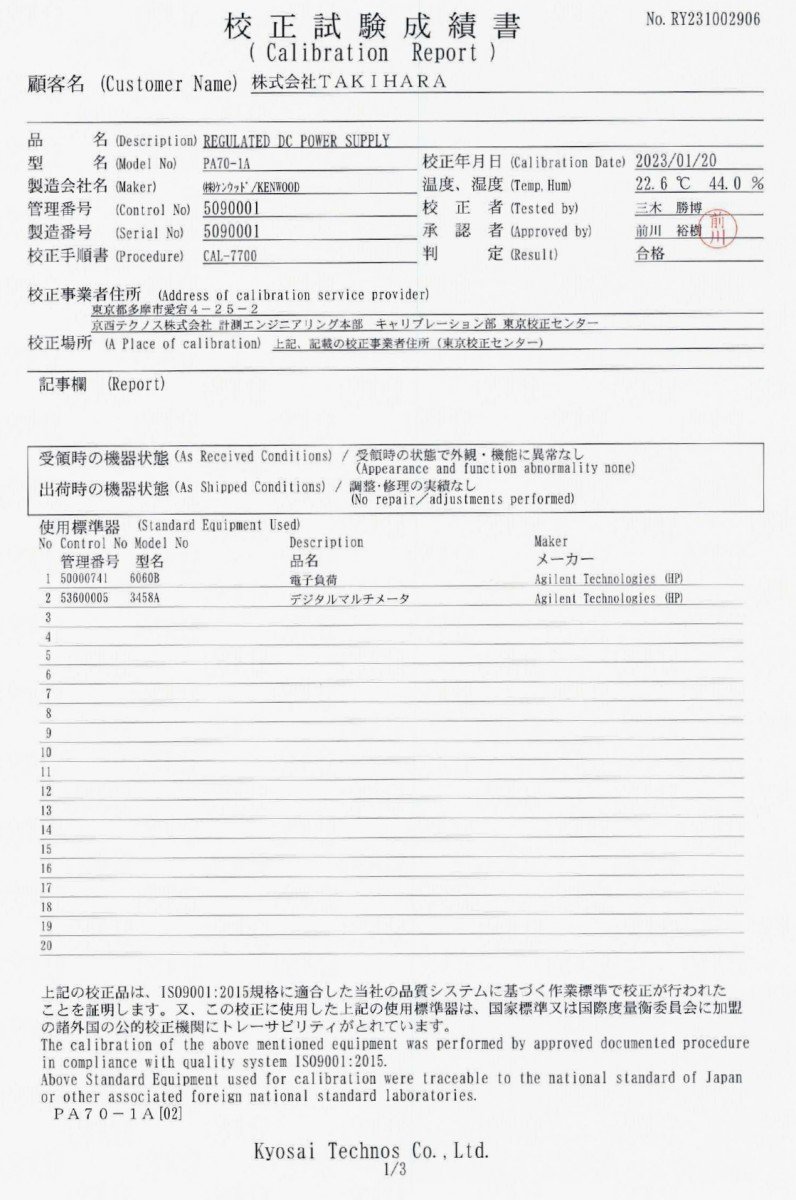 校正試験成績書 No. RY231002906
( Calibration Report )
顧客名 (Customer Name) 株式会社TAKIHARA
品名 (Description) REGULATED DC POWER SUPPLY
型名 (Model No) PA70-1A 校正年月日 (Calibration Date) 2023/01/20
製造会社名 (Maker) ㈱ケンウッド/KENWOOD 温度、湿度 (Temp, Hum) 22.6 ℃ 44.0 %
管理番号 (Control No) 5090001 校正者 (Tested by) 三木 勝博
製造番号 (Serial No) 5090001 承認者 (Approved by) 前川 裕樹 前川
校正手順書 (Procedure) CAL-7700 判定 (Result) 合格
校正事業者住所 (Address of calibration service provider)
東京都多摩市愛宕4-25-2
京西テクノス株式会社 計測エンジニアリング本部 キャリブレーション部 東京校正センター
校正場所 (A Place of calibration) 上記、記載の校正事業者住所 (東京校正センター)
記事欄 (Report)
受領時の機器状態 (As Received Conditions) / 受領時の状態で外観・機能に異常なし
(Appearance and function abnormality none)
出荷時の機器状態 (As Shipped Conditions) / 調整・修理の実績なし
(No repair/adjustments performed)
使用標準器 (Standard Equipment Used)
No Control No Model No Description Maker
管理番号 型名 品名 メーカー
1 50000741 6060B 電子負荷 Agilent Technologies (HP)
2 53600005 3458A デジタルマルチメータ Agilent Technologies (HP)
3
4
5
6
7
8
9
10
11
12
13
14
15
16
17
18
19
20
上記の校正品は、ISO9001:2015規格に適合した当社の品質システムに基づく作業標準で校正が行われた
ことを証明します。又、この校正に使用した上記の使用標準器は、国家標準又は国際度量衡委員会に加盟
の諸外国の公的校正機関にトレーサビリティがとれています。
The calibration of the above mentioned equipment was performed by approved documented procedure
in compliance with quality system ISO9001:2015.
Above Standard Equipment used for calibration were traceable to the national standard of Japan
or other associated foreign national standard laboratories.
PA70-1A[02]
Kyosai Technos Co.,Ltd.
1/3